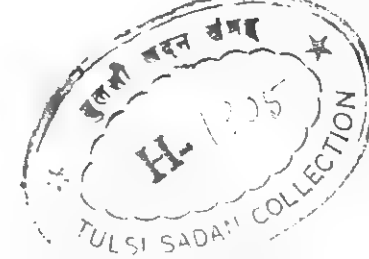 तुलसी सदन संग्रह
H. 1205
TULSI SADAN COLLECTION